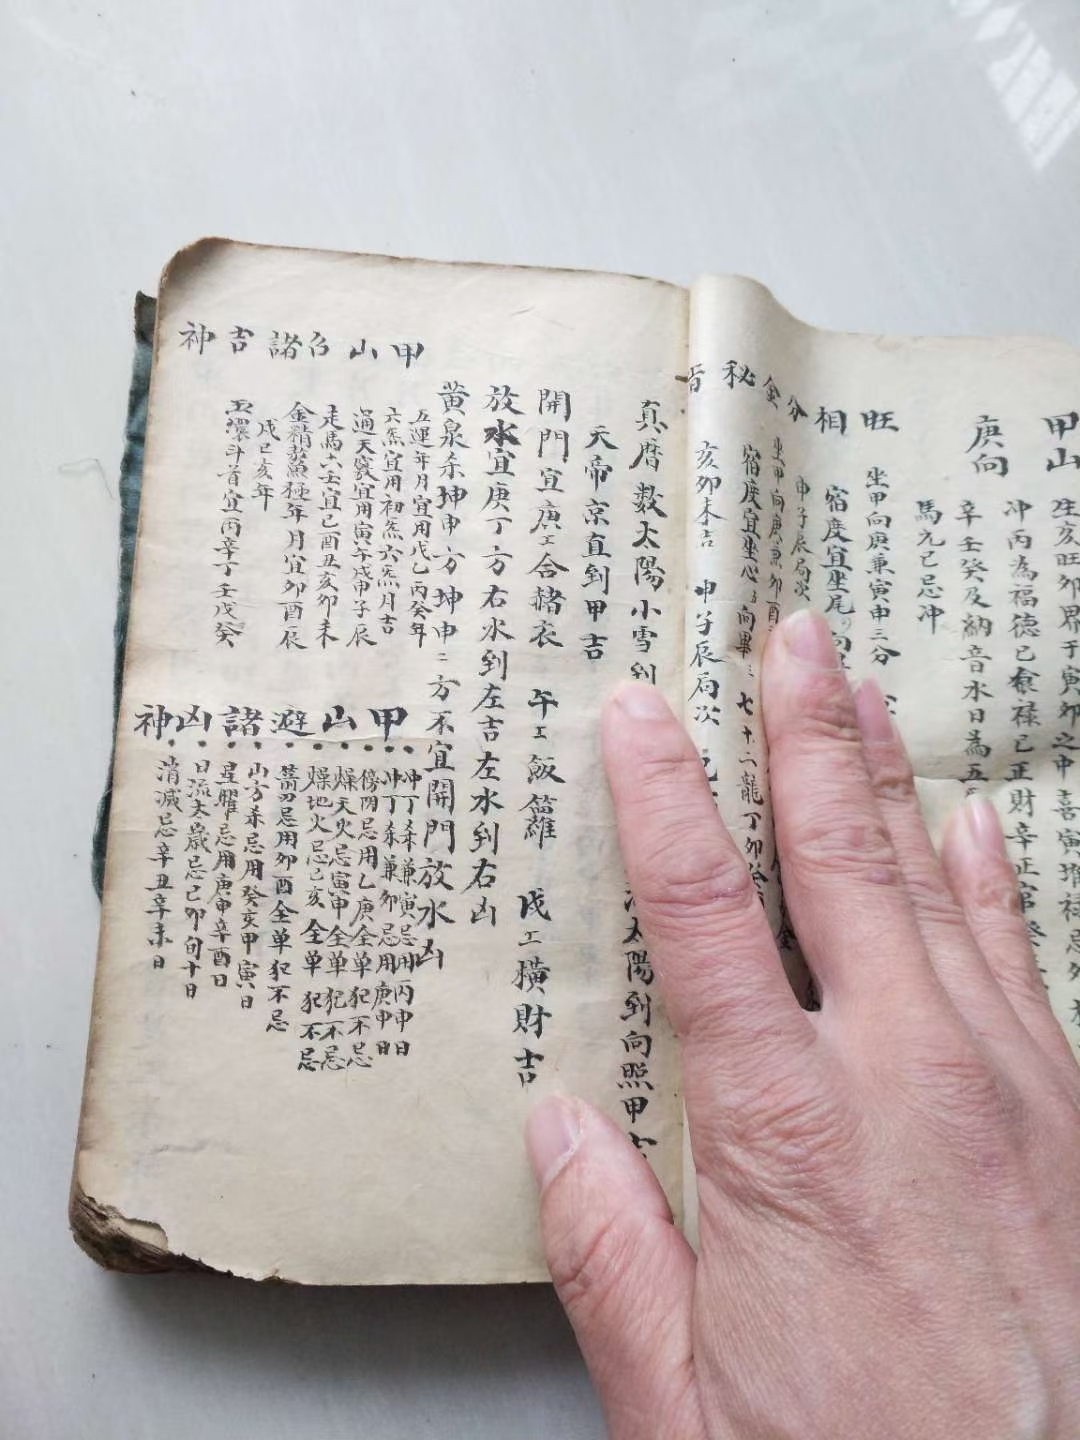 甲山
庚向
生亥旺卯界于寅卯之中喜寅堆祿忌
冲丙為福德巳食祿巳正財辛正官癸
辛壬癸及納音水日為五
馬九巳忌冲
旺
相
坐甲向庚兼寅申三分
宿度宜坐尾
分金秘旨
申子辰局次
坐甲向庚兼卯酉
宿度宜坐心 向畢 七十二龍丁卯
亥卯未吉 申子辰局次
真曆数太陽小雪到
太陽到向照甲吉
天帝京直到甲吉
開門宜庚工合赭衣 午工飯籮 戌工橫財吉
放水宜庚丁方右水到左吉左水到右凶
黄泉杀坤申方坤申二方不宜開門放水凶
甲山召諸吉神
五運年月宜用戊乙丙癸年
六炁宜用初炁六炁月吉
通天竅宜用寅午戌申子辰
走馬六壬宜巳酉丑亥卯未
金精鰲極年月宜卯酉辰
戌巳亥年
五環斗首宜丙辛丁壬戊癸
甲山避諸凶神
冲丁杀兼寅忌用丙申日
冲丁杀兼卯忌用庚申日
傍阴忌用乙庚全单犯不忌
燥天火忌寅申全单犯不忌
燥地火忌巳亥全单犯不忌
箭刃忌用卯酉全单犯不忌
山方杀忌用癸亥甲寅日
星曜忌用庚申辛酉日
日流太歲忌己卯旬十日
消滅忌辛丑辛未日